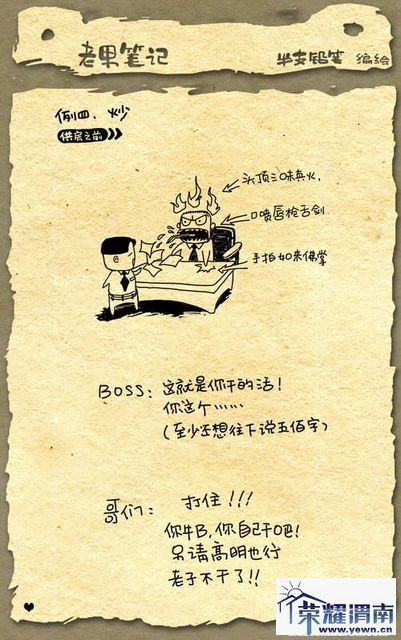 老果笔记
半支铅笔 编绘
例四、炒
供房之前
头顶三味真火,
口喷唇枪舌剑
手拍如来佛掌
BOSS: 这就是你干的活!
你这个……
(至少还想往下说五佰字)
哥们: 打住!!!
你牛B,你自己干吧!
另请高明也行
老子不干了!!
荣耀渭南
www.yewn.cn